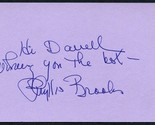 Hi Darrell
Wishing you the best —
Phyllis Brooks